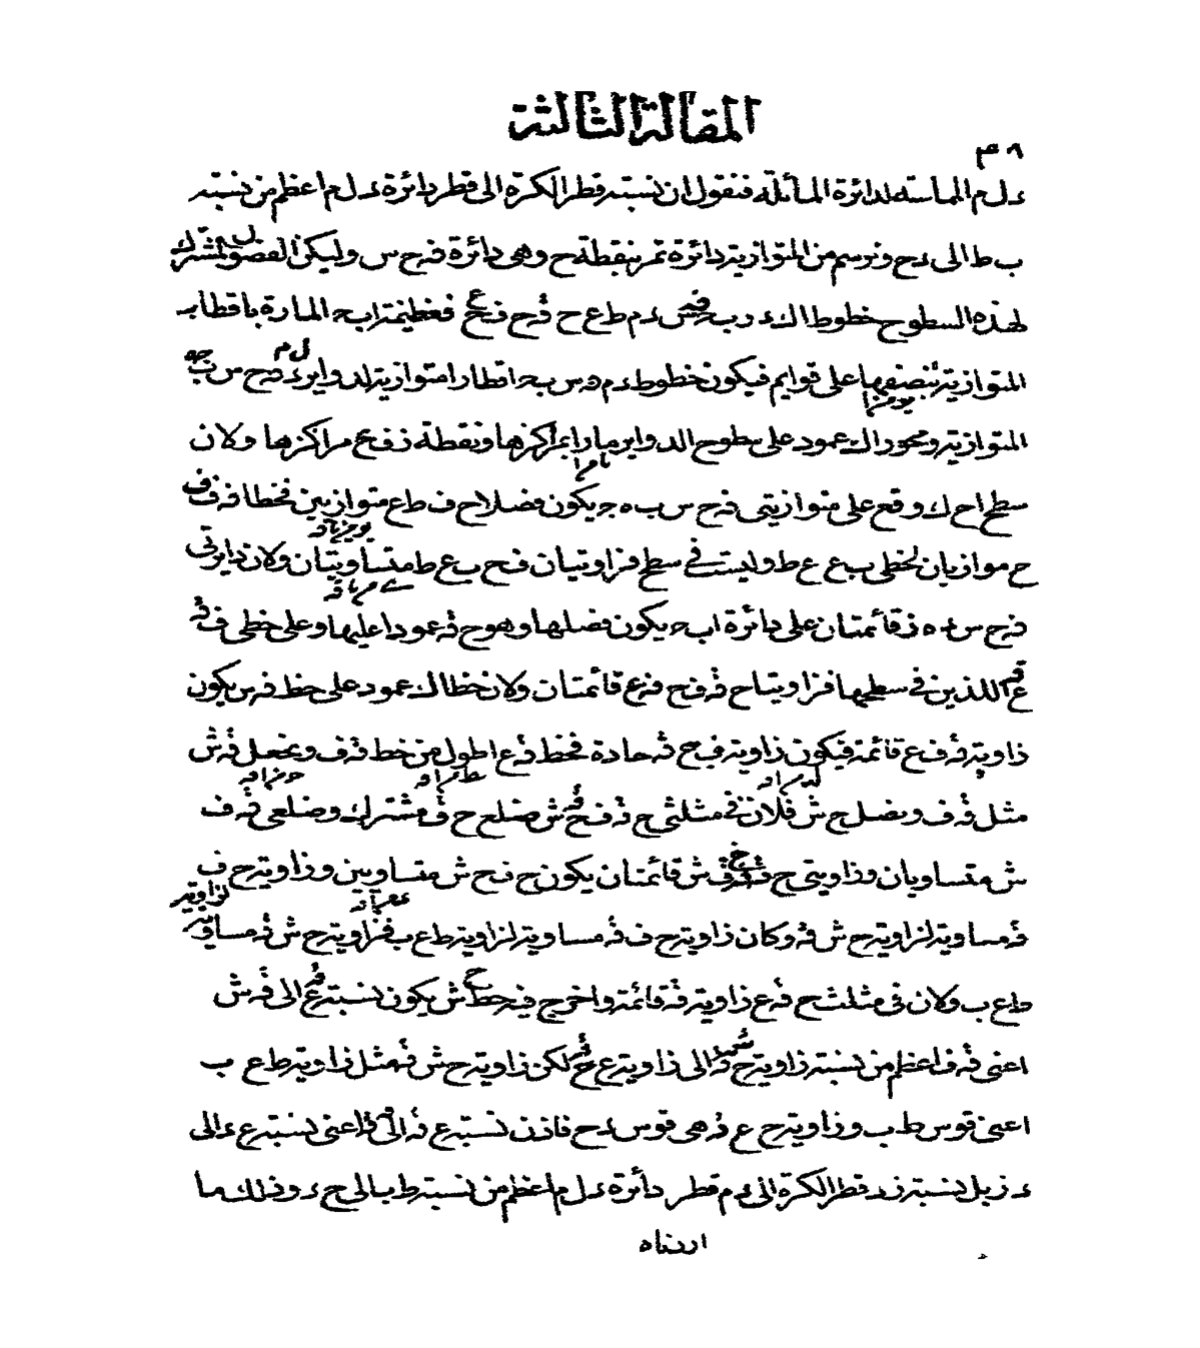 المقالة الثالثة
٣٨
ء ل م المماسة لدائرة المائلة فنقول ان نسبة قطر الكرة الى قطر دائرة ء ل م اعظم من نسبة
ب ط الى ء ح و نرسم من المتوازية دائرة تمر بنقطة ح وهى دائرة ف ح س وليكن الفصول المشتركة
لهذه السطوح خطوط ا ك ء ر ب ء م ط ع ح فعظيمة ا ب ح المارة باقطاب
المتوازية تنصفها على قوايم فيكون خطوط ء م ه س ب ح اقطارا متوازية لدواير ء ل م ف ح س ب ح
المتوازية ومحور ا ك عمود على سطوح الدواير مارا بمراكزها ونقطة ز ف ع مراكزها ولان
سطح ا ح ك وقع على متوازيتى ف ح س ب ه ج يكون فصلا ح ف ط ع متوازيين فخطا ف ق ف
ح موازيان لخطى ب ع ع ط وليست فى سطح فزاويتان ف ح ب ع ط متساويتان ولان دايرتى
ف ح س ء ه ز قائمتان على دائرة ا ب ح يكون فصلها وهو ح ق عمودا عليها وعلى خطى ف ق
ق ع اللذين فى سطحها فزاويتا ح ق ف ح ق ع قائمتان ولان خط ا ك عمود على خط ف س يكون
زاوية ق ف ع قائمة فيكون زاوية ف ع ق حادة فخط ق ع اطول من خط ق ف ونجعل ق ش
مثل ق ف ونصل ح ش فلان فى مثلثى ح ق ف ح ق ش ضلع ح ق مشترك وضلعى ق ف
ق ش متساويان وزاويتى ح ق ف ح ق ش قائمتان يكون ح ف ح ش متساويين وزاوية ح ف
ق مساوية لزاوية ح ش ق وكان زاوية ح ف ق مساوية لزاوية ط ع ب فزاوية ح ش ق مساوية لزاوية
ط ع ب ولان فى مثلث ح ق ع زاوية ق قائمة واخرج فيه خط ح ش يكون نسبة ق ع الى ق ش
اعنى ق ف اعظم من نسبة زاوية ح ش ق الى زاوية ع ح ق لكن زاوية ح ش ق مثل زاوية ط ع ب
اعنى قوس ط ب وزاوية ح ع ق هى قوس ء ح فاذن نسبة ع ق الى ق ف اعنى نسبة ع ء الى
ء ز بل نسبة ز د قطر الكرة الى ء م قطر دائرة ء ل م اعظم من نسبة ط ب الى ح ء وذلك ما
اردناه